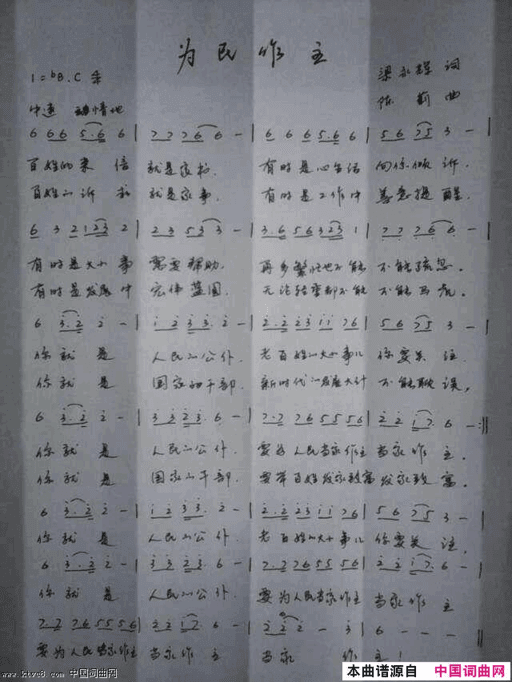 为民作主
1=bB.C
梁永辉 词
中速 动情地
陈莉 曲
6 6 6 5·6 6 | 7 7 7 6 6 - | 6 6 6 5·6 6 | 5 6 7 5 3 - |
百姓的来信 就是家书. 有时是 向你倾诉.
百姓的诉求 就是家事. 有时是工作中 善意提醒.
6 3 2 1 2 3 2 | 2 3 5 3 3 - | 3·6 5 6 3 2 3 1 | 7·6
有时是大小事 需要帮助. 再多繁忙也不能 不能疏忽.
有时是发展中 宏伟蓝图. 不能
6 3·2 2 - | 1 2 3 3·2 - | 2·2 2 3 1 1 7 6 | 5 6 7 5 3 - |
你就是 人民的公仆. 老百姓的大小事儿 你要关注.
你就是 国家的干部. 新时代的发展大计 不能耽误,
6 3·2 2 - | 3 3 2 3·6 - | 7·7 7 6 5 5 5 6 | 2 2 1 7·6 - :||
你就是 人民的公仆. 要为人民当家作主 当家作主.
你就是 国家的干部. 要带百姓发家致富 发家致富.
6 3·2 2 - | 1 2 3 3·2 - | 2·2 2 3 1 1 7 6 | 5 6 7 5 3 - |
你就是 人民的公仆 老百姓的大小事儿 你要关注.
6 3·2 2 - | 3 3 2 3·6 - | 7·7 7 6 5 5 5 6 | 2 2 1 7·6 - |
你就是 人民的公仆 要为人民当家作主 当家作主
7·7 7 6 5 5 5 6 | 2 2 1 7·6 - | 2 2 2 - 3 | 6 - - - ||
要为人民当家作主 当家作主 当家作主!
www.ktvc8.com 中国词曲网
本曲谱源自 中国词曲网